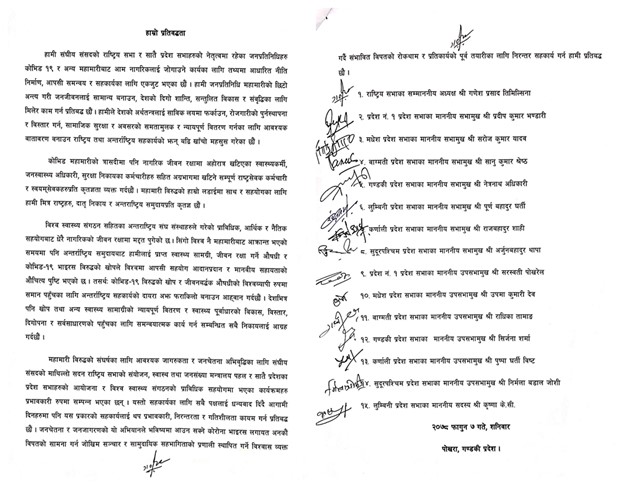 हाम्रो प्रतिबद्धता
हामी संघीय संसदको राष्ट्रिय सभा र सातै प्रदेश सभाहरुको नेतृत्वमा रहेका जनप्रतिनिधिहरु
कोभिड १९ र अन्य महामारीबाट आम नागरिकलाई जोगाउने कार्यका लागि तथ्यमा आधारित नीति
निर्माण, आपसी समन्वय र सहकार्यका लागि एकजुट भएका छौं । हामी जनप्रतिनिधि महामारीको छिटो
अन्त्य गरी जनजीवनलाई सामान्य बनाउन, देशको दिगो शान्ति, सन्तुलित विकास र संवृद्धिका लागि
मिलेर काम गर्न प्रतिबद्ध छौं । हामीले देशको अर्थतन्त्रलाई साविक लयमा फर्काउन, रोजगारीको पुर्नस्थापना
र विस्तार गर्न, सामाजिक सुरक्षा र अवसरको समतामुलक र न्यायपूर्ण वितरण गर्नका लागि आवश्यक
वातावरण बनाउन राष्ट्रिय तथा अन्तर्राष्ट्रिय सहकार्यको झन् बढि खाँचो महसुस गरेका छौं ।
कोभिड महामारीको त्रासदीमा पनि नागरिक जीवन रक्षामा अहोरात्र खटिएका स्वास्थ्यकर्मी,
जनस्वास्थ्य अधिकारी, सुरक्षा निकायका कर्मचारीहरु सहित अग्रभागमा खटिने सम्पूर्ण राष्ट्रसेवक कर्मचारी
र स्वयमसेवकहरुप्रति कृतज्ञता व्यक्त गर्दछौं । महामारी विरुद्धको हाम्रो लडाईमा साथ र सहयोगका लागि
हामी मित्र राष्ट्रहरु, दातृ निकाय र अन्तराष्ट्रिय समुदायप्रति कृतज्ञ छौं ।
विश्व स्वास्थ्य संगठन सहितका अन्तराष्ट्रिय संघ संस्थाहरुले गरेको प्राविधिक, आर्थिक र नैतिक
सहयोगबाट धेरै नागरिकको जीवन रक्षामा मद्दत पुगेको छ । सिंगो विश्व नै महामारीबाट आक्रान्त भएको
समयमा पनि अन्तर्राष्ट्रिय समुदायबाट हामीलाई प्राप्त स्वास्थ्य सामग्री, जीवन रक्षा गर्ने औषधी र
कोभिड-१९ भाइरस विरुद्धको खोपले विश्वमा आपसी सहयोग आदानप्रदान र मानवीय सहायताको
औचित्य पुष्टि भएको छ । तसर्थ: कोभिड-१९ विरुद्धको खोप र जीवनवर्द्धक औषधीको विश्वव्यापी रुपमा
समान पहुँचका लागि अन्तर्राष्ट्रिय सहकार्यको दायरा अझ फराकिलो बनाउन आह्वान गर्दछौं । देशभित्र
पनि खोप तथा अन्य स्वास्थ्य सामाग्रीको न्यायपूर्ण वितरण र स्वास्थ्य पूर्वाधारको विकास, विस्तार,
दिगोपना र सर्वसाधारणको पहुँचका लागि समन्वयात्मक कार्य गर्न सम्बन्धित सबै निकायलाई आग्रह
गर्दछौं ।
महामारी विरुद्धको संघर्षका लागि आवश्यक जागरुकता र जनचेतना अभिवृद्धिका लागि संघीय
संसदको माथिल्लो सदन राष्ट्रिय सभाको संयोजन, स्वास्थ्य तथा जनसंख्या मन्त्रालय पहल र सातै प्रदेशका
प्रदेश सभाहरुको आयोजना र विश्व स्वास्थ्य संगठनको प्राविधिक सहयोगमा भएका कार्यक्रमहरु
प्रभावकारी रुपमा सम्पन्न भएका छन् । यस्तो सहकार्यका लागि सबै पक्षलाई धन्यवाद दिदै आगामी
दिनहरुमा पनि यस प्रकारको सहकार्यलाई थप प्रभावकारी, निरन्तरता र गतिशीलता कायम गर्न प्रतिबद्ध
छौं । जनचेतना र जनजागरणको यो अभियानले भविष्यमा आउन सक्ने कोरोना भाइरस लगायत अनकौं
विपतको सामना गर्न जोखिम सञ्चार र सामुदायिक सहभागिताको प्रणाली स्थापित गर्ने विश्वास व्यक्त
गर्दै संभावित विपतको रोकथाम र प्रतिकार्यको पूर्व तयारीका लागि निरन्तर सहकार्य गर्न हामी प्रतिबद्ध
छौं ।
१. राष्ट्रिय सभाका सम्माननीय अध्यक्ष श्री गणेश प्रसाद तिमिल्सिना
२. प्रदेश नं. १ प्रदेश सभाका माननीय सभामुख श्री प्रदीप कुमार भण्डारी
३. मधेश प्रदेश सभाका माननीय सभामुख श्री सरोज कुमार यादव
४. बाग्मती प्रदेश सभाका माननीय सभामुख श्री सानु कुमार श्रेष्ठ
५. गण्डकी प्रदेश सभाका माननीय सभामुख श्री नेत्रनाथ अधिकारी
६. लुम्बिनी प्रदेश सभाका माननीय सभामुख श्री पूर्ण बहादुर घर्ती
७. कर्णाली प्रदेश सभाका माननीय सभामुख श्री राजबहादुर शाही
८. सुदूरपश्चिम प्रदेश सभाका माननीय सभामुख श्री अर्जुनबहादुर थापा
९. प्रदेश नं. १ प्रदेश सभाका माननीय उपसभामुख श्री सरस्वती पोखरेल
१०. मधेश प्रदेश सभाका माननीय उपसभामुख श्री उपमा कुमारी देव
११. बाग्मती प्रदेश सभाका माननीय उपसभामुख श्री राधिका तामाङ
१२. गण्डकी प्रदेश सभाका माननीय उपसभामुख श्री सिर्जना शर्मा
१३. कर्णाली प्रदेश सभाका माननीय उपसभामुख श्री पुष्पा घर्ती विष्ट
१४. सुदूरपश्चिम प्रदेश सभाका माननीय उपसभामुख श्री निर्मला बडाल जोशी
१५. लुम्बिनी प्रदेश सभाका माननीय सदस्य श्री कृष्णा के.सी.
२०७८ फागुन ७ गते, शनिवार
पोखरा, गण्डकी प्रदेश ।